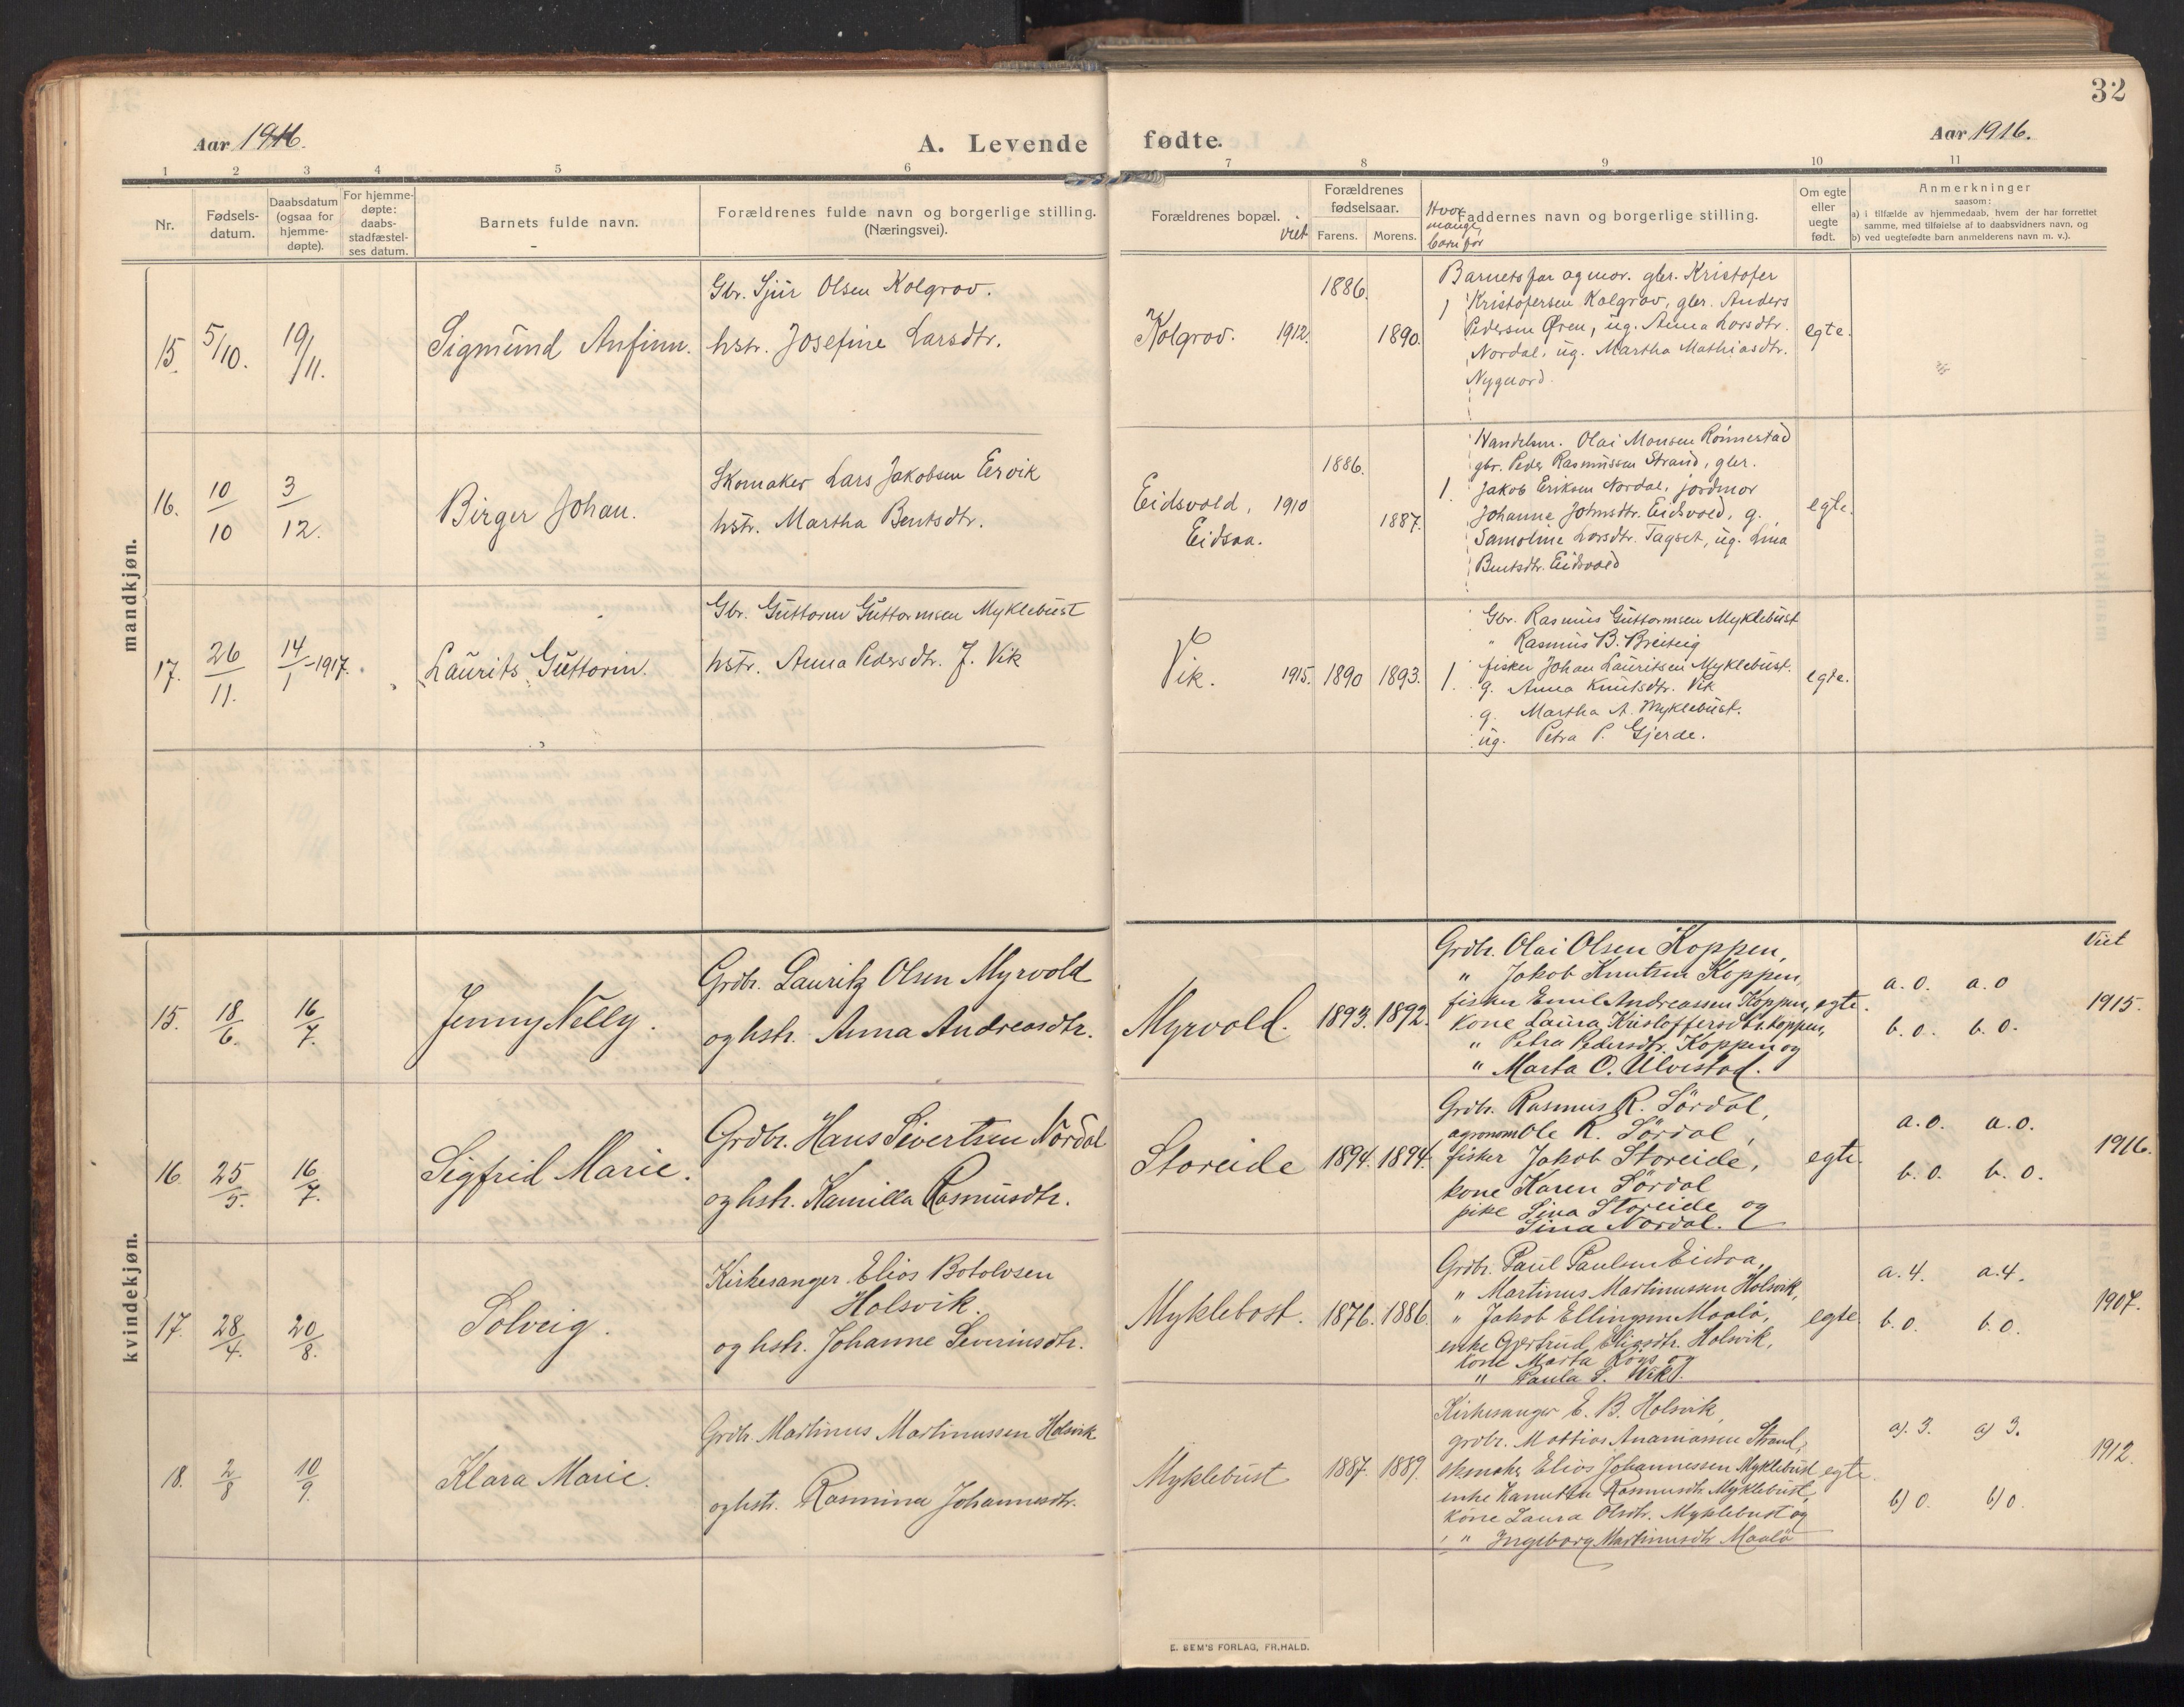 32
Aar 1916.
A. Levende fødte.
Aar 1916.
1 2 3 4 5 6 7 8 9 10 11
Nr.
Fødsels-
datum.
Daabsdatum
(ogsaa for
hjemme-
døpte).
For hjemme-
døpte:
daabs-
stadfæstel-
ses datum.
Barnets fulde navn.
Forældrenes fulde navn og borgerlige stilling.
(Næringsvei).
Forældrenes bopæl.
viet
Forældrenes
fødselsaar.
Farens. Morens.
Hvor
mange
barn før
Faddernes navn og borgerlige stilling.
Om egte
eller
uegte
født.
Anmerkninger
saasom:
a) i tilfælde av hjemmedaab, hvem der har forrettet
samme, med tilføielse af to daabsvidners navn, og
b) ved uegtefødte barn anmelderens navn m. v.).
mandkjøn.
15. 5/10. 19/11.
Sigmund Anfinn.
Gbr. Sjur Olsen Kolgrov.
hstr. Josefine Larsdtr.
Kolgrov. 1912. 1886. 1890. 1
Barnets far og mor. gbr. Kristofer
Kristofersen Kolgrov, gbr. Anders
Pedersen Øren, ug. Anna Larsdtr.
Nordal, ug. Martha Mathiasdtr.
Nygaard.
egte.
16. 10/10 3/12.
Birger Johan.
Skomaker Lars Jakobsen Eervik
hstr. Martha Bentsdtr.
Eidsvold, 1910
Eidsaa.
1886. 1887. 1.
Handelsm. Olai Monsen Rönnestad
gbr. Peder Rasmussen Strand, gbr.
Jakob Eriksen Nordal, jordmor
Johanne Johnsdtr. Eidsvold, g.
Samoline Larsdtr. Tagset, ug. Lina
Bentsdtr. Eidsvold
egte.
17. 26/11. 14/1-1917.
Laurits Guttorm.
Gbr. Guttorm Guttormsen Myklebust
hstr. Anna Pedersdtr. f. Vik
Vik. 1915. 1890 1893. 1.
Gbr. Rasmus Guttormsen Myklebust
" Rasmus B. Breiteig
fisker Johan Lauritsen Myklebust.
g. Anna Knutsdtr. Vik
g. Martha A. Myklebust.
ug. Petra P. Gjerde.
egte.
kvindekjøn.
Viet
15. 18/6. 16/7.
Jenny Nelly.
Grdbr. Lauritz Olsen Myrvold
og hstr. Anna Andreasdtr.
Myrvold. 1893. 1892.
Grdbr. Olai Olsen Koppen,
" Jakob Knutsen Koppen,
fisker Emil Andreassen Koppen,
kone Laura Kristoffersdtr. Koppen,
" Petra Pedersdtr. Koppen og
" Marta O. Ulvestad.
egte.
a. 0. a. 0
b. 0. b. 0.
1915.
16. 25/5. 16/7.
Sigfrid Marie.
Grdbr. Hans Sivertsen Nordal
og hstr. Kamilla Rasmusdtr.
Storeide 1894. 1894.
Grdbr. Rasmus R. Sördal,
agronom Ole R. Sördal,
fisker Jakob Storeide,
kone Karen Sördal
pike Lina Storeide og
Sina Nordal.
egte.
a. 0. a. 0.
b. 0. b. 0.
1916.
17. 28/4. 20/8.
Solveig.
Kirkesanger Elias Botolvsen
Holsvik.
og hstr. Johanne Severinsdtr.
Myklebost. 1876. 1886.
Grdbr. Paul Paulsen Eidsaa,
" Martinus Martinussen Holsvik,
" Jakob Ellingsen Maalö,
enke Gjertrud Eliasdtr. Holsvik,
kone Marta Röys og
" Paula S. Wik.
egte
a. 4. a. 4.
b. 0. b. 0.
1907.
18. 2/8 10/9.
Klara Marie.
Grdbr. Martinus Martinussen Holsvik
og hstr. Rasmine Johannesdtr.
Myklebust 1887. 1889.
Kirkesanger E. B. Holsvik,
grdbr. Mattias Ananiassen Strand,
skomaker Elias Johannessen Myklebust
enke Rasmusdtr. Myklebust,
kone Laura Olsdtr. Myklebust og
" Ingeborg Martinusdtr Maalö
egte.
a). 3. a) 3.
b) 0. b) 0.
1912.
E. SEM'S FORLAG, FR.HALD.